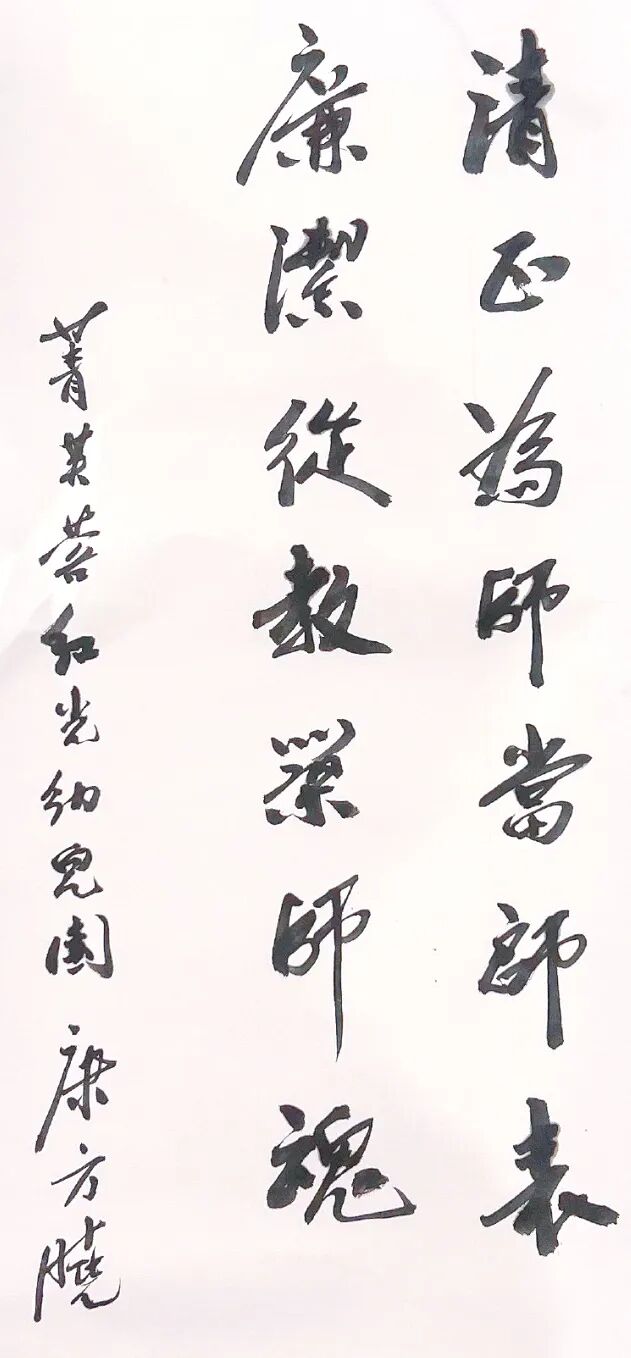 清正為師當師表
廉潔從教築師魂
菁紅光幼兒園 康方曉